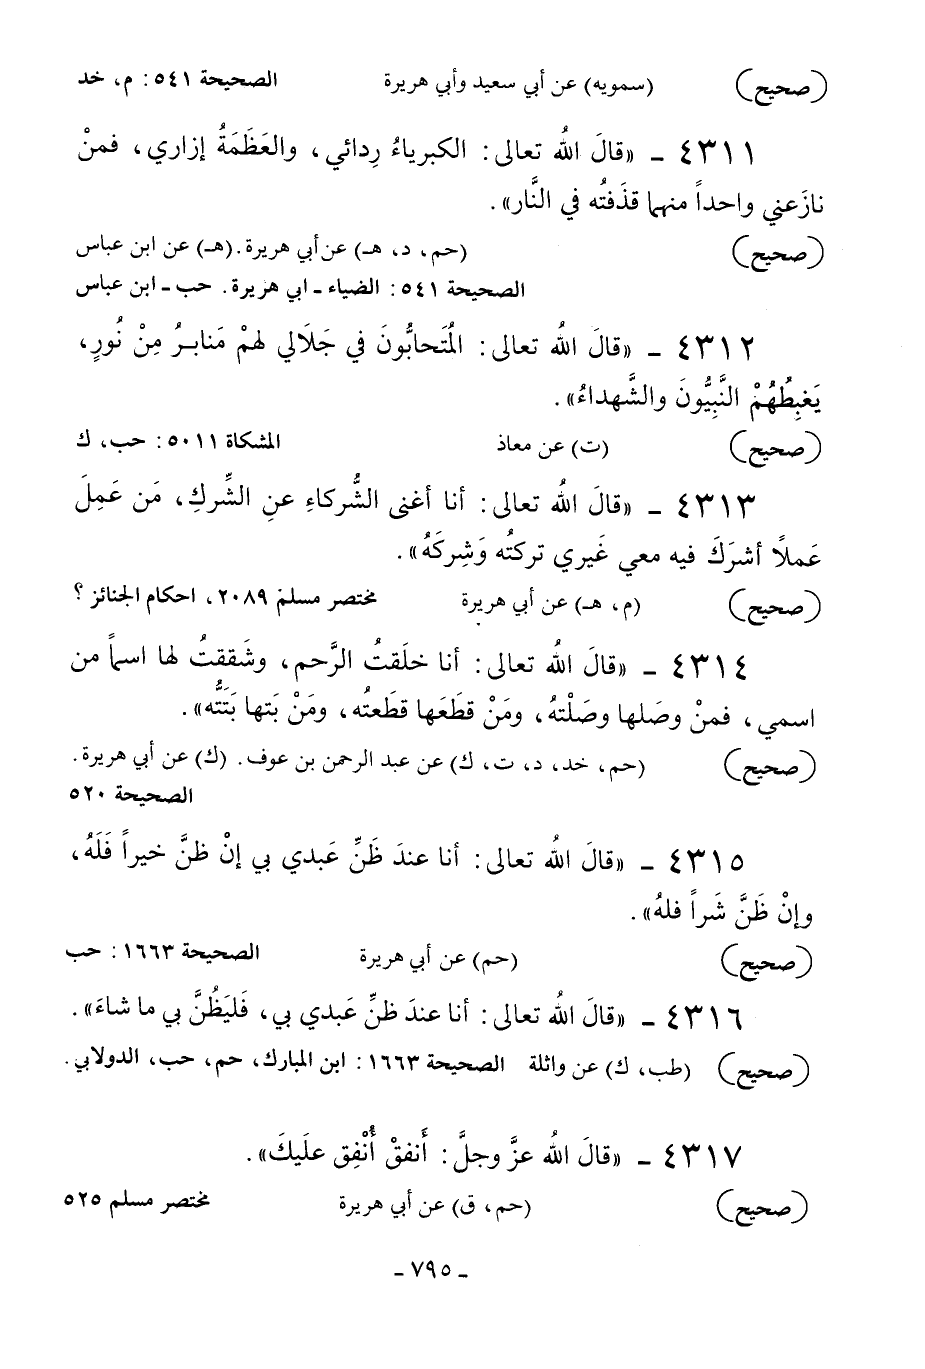 (صحيح) (سمويه) عن أبي سعيد وأبي هريرة الصحيحة ٥٤١: م، خد
٤٣١١ ـ «قالَ اللهُ تعالى: الكبرياءُ رِدائي، والعَظَمَةُ إزاري، فمنْ
نازَعني واحداً منهما قذَفتُه في النَّار».
(صحيح) (حم، د، هـ) عن أبي هريرة. (هـ) عن ابن عباس
الصحيحة ٥٤١: الضياء ـ ابي هريرة. حب ـ ابن عباس
٤٣١٢ ـ «قالَ اللهُ تعالى: المُتَحابُّونَ في جَلَالي لهمْ مَنابـرُ مِنْ نُورٍ،
يَغبِطُهُمْ النَّبِيُّونَ والشَّهداءُ».
(صحيح) (ت) عن معاذ المشكاة ٥٠١١: حب، ك
٤٣١٣ ـ «قالَ اللهُ تعالى: أنا أغنى الشُّركاءِ عنِ الشِّركِ، مَن عَمِلَ
عَملًا أشرَكَ فيه معي غَيري تركتُه وَشِركَهُ».
(صحيح) (م، هـ) عن أبي هريرة مختصر مسلم ٢٠٨٩، احكام الجنائز ؟
٤٣١٤ ـ «قالَ اللهُ تعالى: أنا خلَقتُ الرَّحم، وشَققتُ لها اسماً من
اسمي، فمنْ وصَلها وصَلْتهُ، ومَنْ قطَعَها قطَعتُه، ومَنْ بَتها بَتَتُّه».
(صحيح) (حم، خد، د، ت، ك) عن عبد الرحمن بن عوف. (ك) عن أبي هريرة.
الصحيحة ٥٢٠
٤٣١٥ ـ «قالَ اللهُ تعالى: أنا عندَ ظَنِّ عَبدي بي إنْ ظنَّ خيراً فَلَهُ،
وإنْ ظَنَّ شَراً فلهُ».
(صحيح) (حم) عن أبي هريرة الصحيحة ١٦٦٣: حب
٤٣١٦ ـ «قالَ اللهُ تعالى: أنا عندَ ظنِّ عَبدي بي، فَليَظُنَّ بي ما شاءَ».
(صحيح) (طب، ك) عن واثلة الصحيحة ١٦٦٣: ابن المبارك، حم، حب، الدولابي.
٤٣١٧ ـ «قالَ اللهُ عزَّ وجلَّ: أَنفقْ أُنْفِق علَيكَ».
(صحيح) (حم، ق) عن أبي هريرة مختصر مسلم ٥٢٥
ـ ٧٩٥ ـ